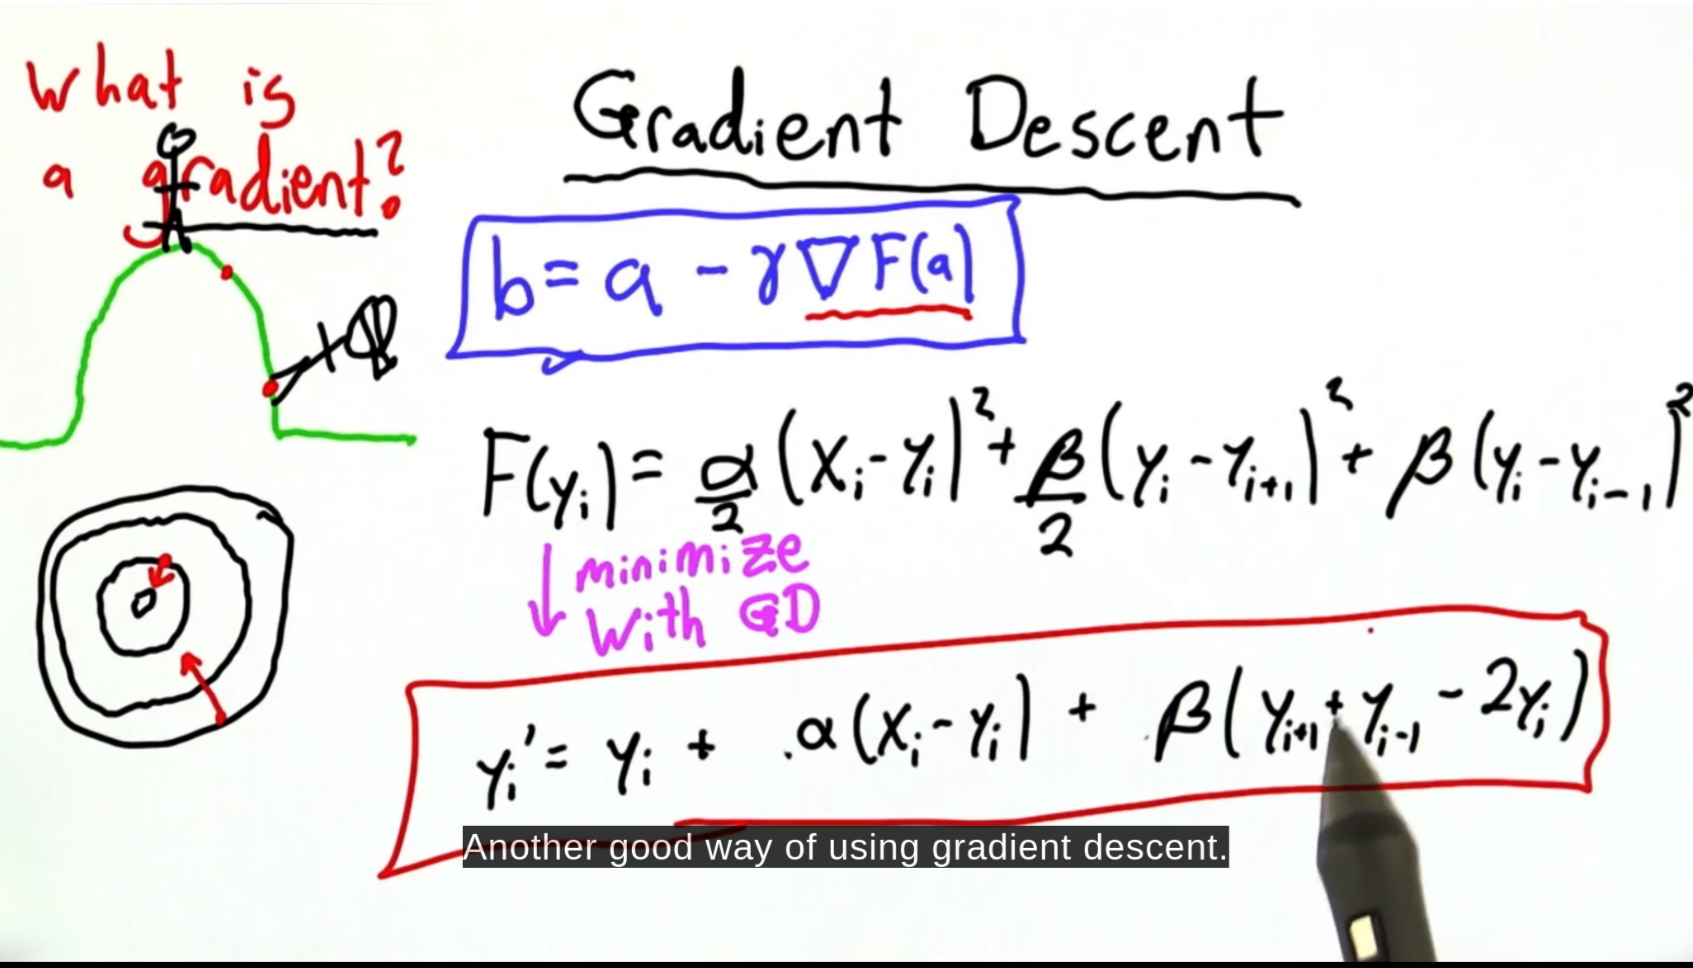 What is
a gradient?
Gradient Descent
b = a - γ∇F(a)
F(yᵢ) = α/2 (xᵢ - yᵢ)² + β/2 (yᵢ - yᵢ₊₁)² + β (yᵢ - yᵢ₋₁)²
↓ minimize
with GD
yᵢ' = yᵢ + α(xᵢ - yᵢ) + β(yᵢ₊₁ + yᵢ₋₁ - 2yᵢ)
Another good way of using gradient descent.